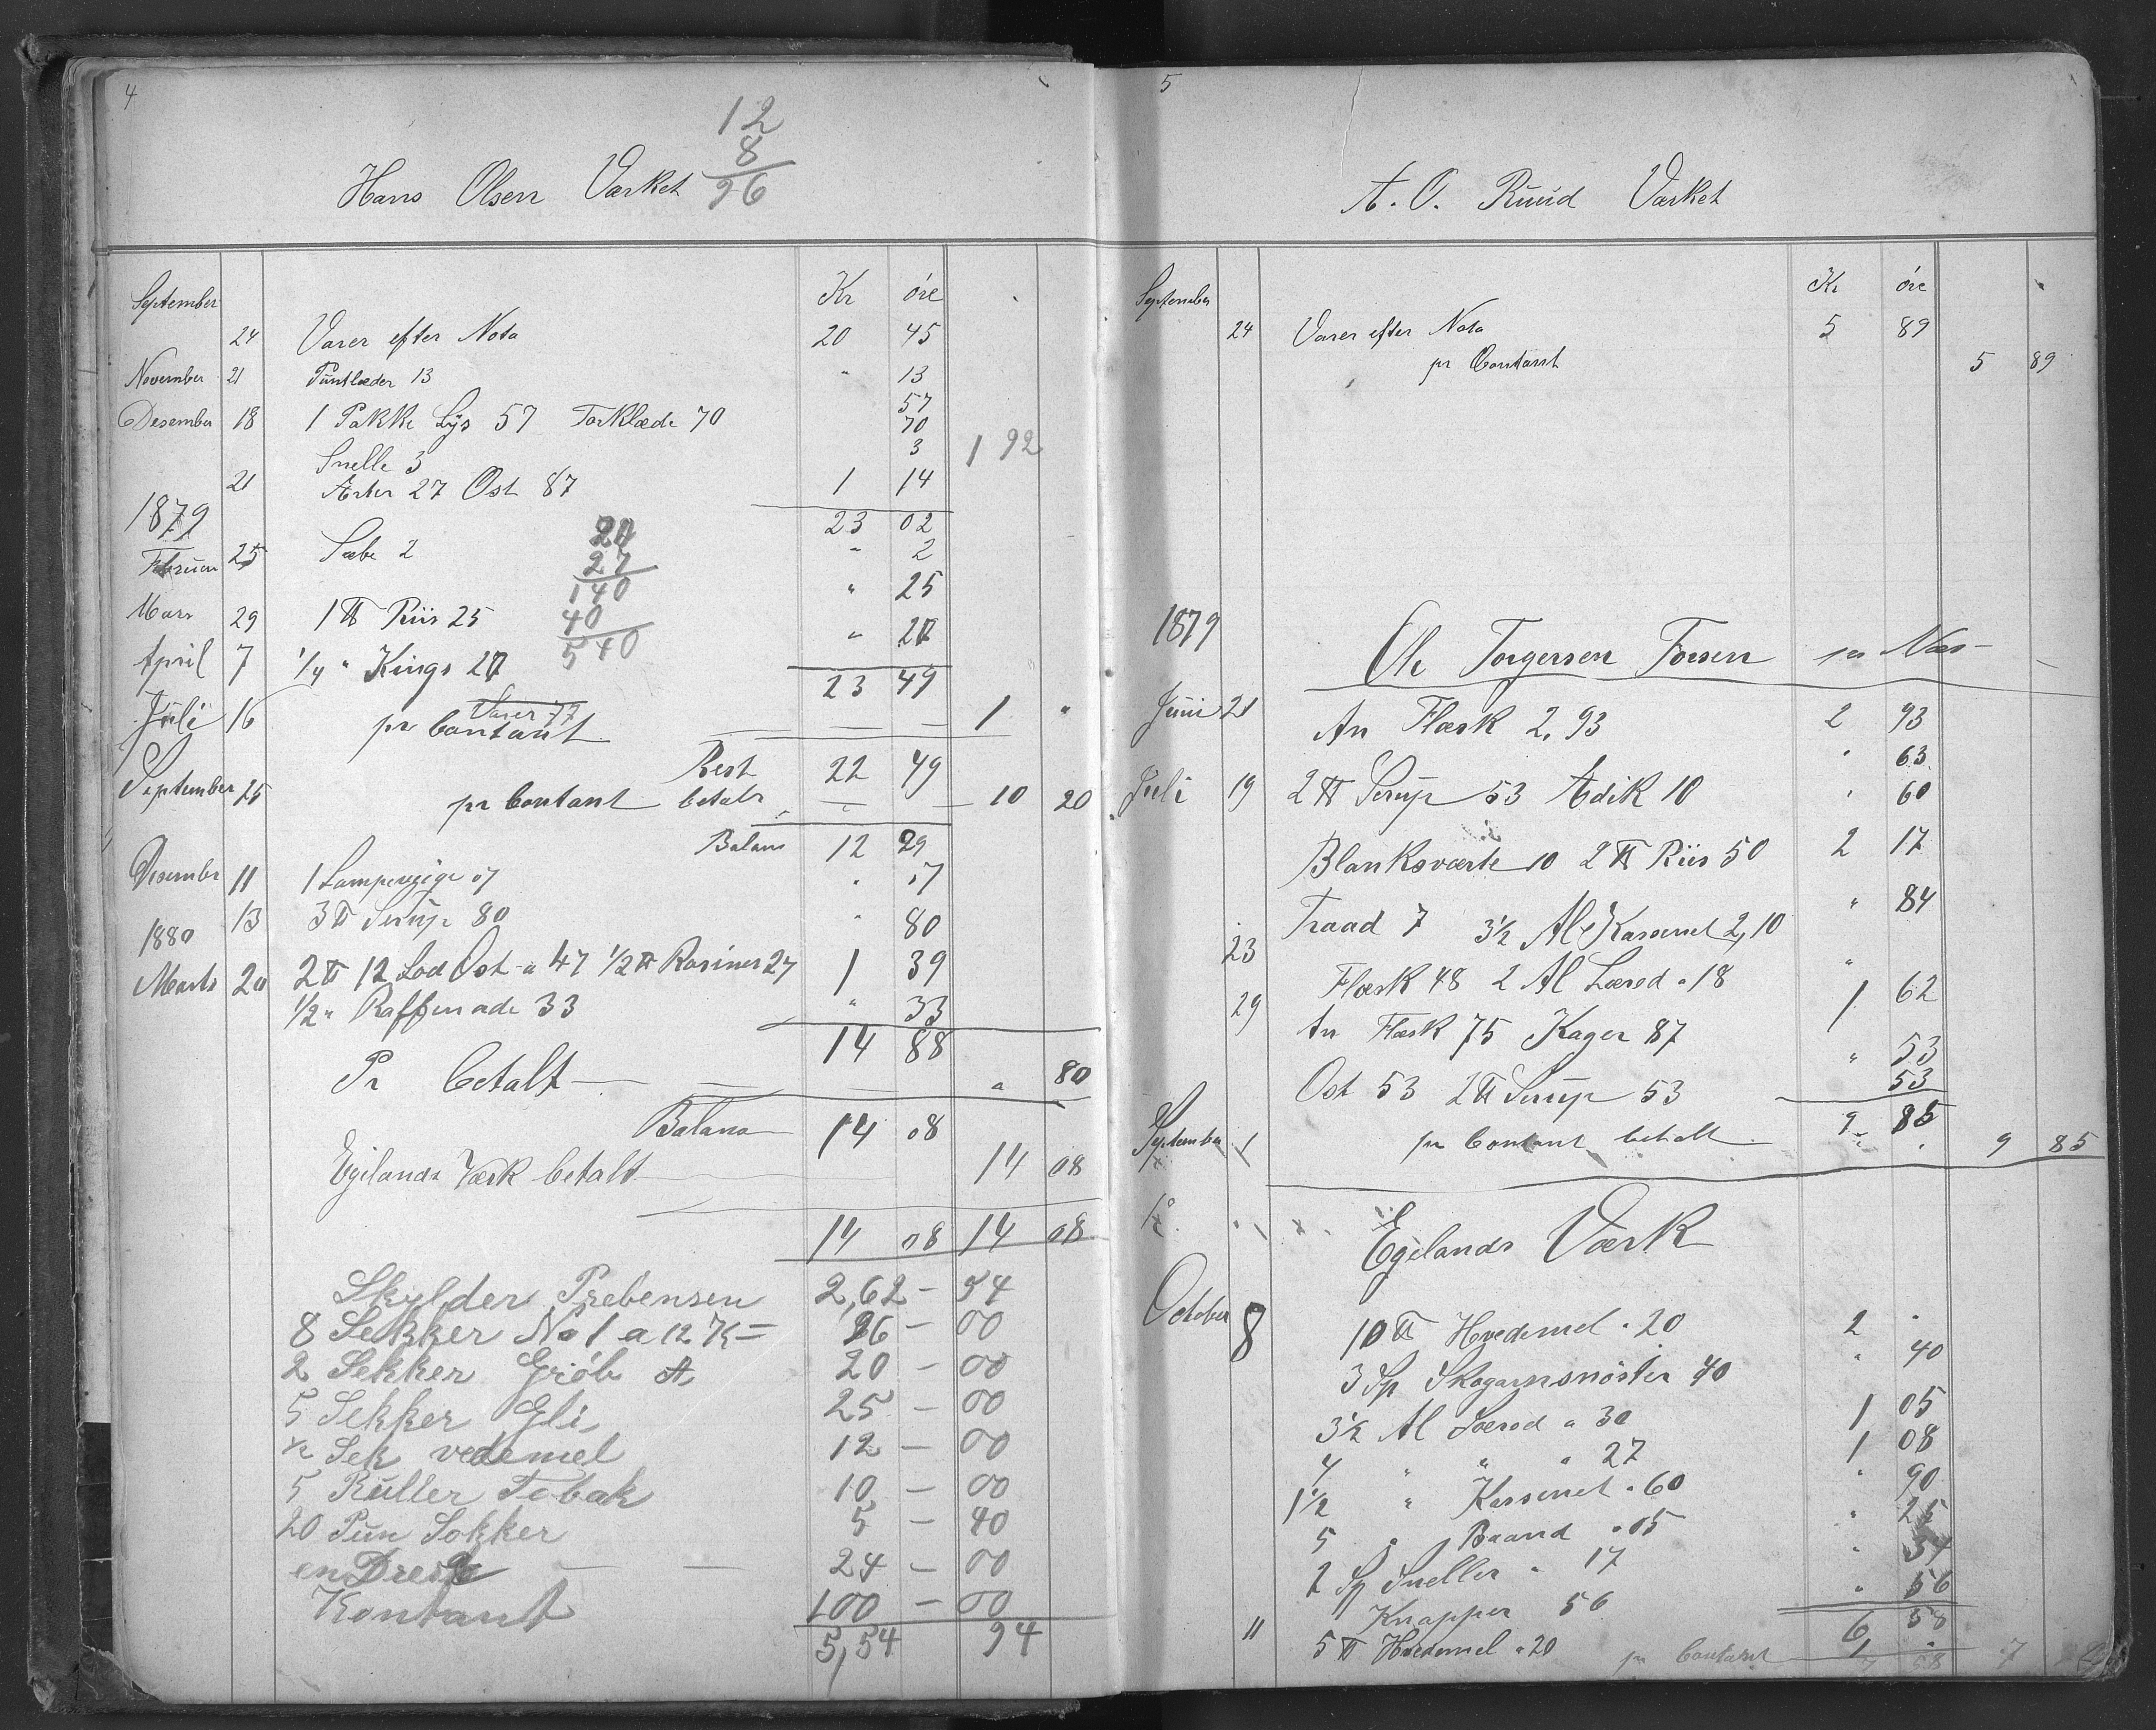 4
12
8
96
Hans Olsen Værket
Kr øre
September
24 Varer efter Nota 20 45
November 21 Puntlæder 13 " 13
Desember 18 1 Pakke Lys 57 Torklæde 70 57
70
Snelle 3 3
1 92
21 Ærter 27 Ost 87 1 14
1879 23 02
Februar 25 Sæbe 2 " 2
20
27
140
40
540
Mars 29 1 ℔ Riis 25 " 25
April 7 1/4 " Kings 20 " 20
23 49
Varer 77
Juli 16 pr Contant — — 1 "
Rest 22 49
September 25 pr Contant betalt — " — 10 20
Balans 12 29
Desember 11 1 Lampevæge 07 " 07
13 3 ℔ Sirup 80 " 80
1880
Marts 20 2 ℔ 12 Lod Ost a 47 1/2 ℔ Rosiner 27 1 39
1/2 " Raffinade 33 " 33
14 88
Pr betalt — — " 80
Balans 14 08
Egelands Værk betalt 14 08
14 08 14 08
Skylder Prebensen 2,62 - 54
8 Sekker No 1 a 12 K = 96 - 00
2 Sekker Gròb A 20 - 00
5 Sekker Gli 25 - 00
1/2 Sek vedemel 12 - 00
5 Ruller Tobak 10 - 00
20 Pun Sokker 5 - 40
en 24 - 00
Kontant 100 - 00
5,54 94
5
A. O. Ruud Værket
Kr øre
September
24 Varer efter Nota 5 89
pr Contant 5 89
1879
Ole Torgersen Fossen pr Næs
Juni 21 An Flæsk 2,93 2 93
" 63
Juli 19 2 ℔ Sirup 53 Edik 10 " 60
Blanksværte 10 2 ℔ Riis 50 2 17
Traad 7 3 1/2 Al Karsenet 2,10 " 84
23 Flæsk 48 2 Al Lærred a 18 "
29 An Flæsk 75 Kager 87 1 62
" 53
Ost 53 2 ℔ Sirup 53 53
9 85
September 1 pr Contant betalt 9 85
Egelands Værk
October 8 10 ℔ Hvedemel a 20 2 "
3 Sp Skogarnsnöster 40 " 40
3 1/2 Al Lærred a 30 1 05
4 " " a 27 1 08
1 1/2 " Karsenet a 60 " 90
5 " Baand a 05 " 25
2 Sp Sneller a 17 " 34
Knapper 56 " 56
6 58
11 5 ℔ Hvedemel a 20 1 "
pr Contant 7 58 7